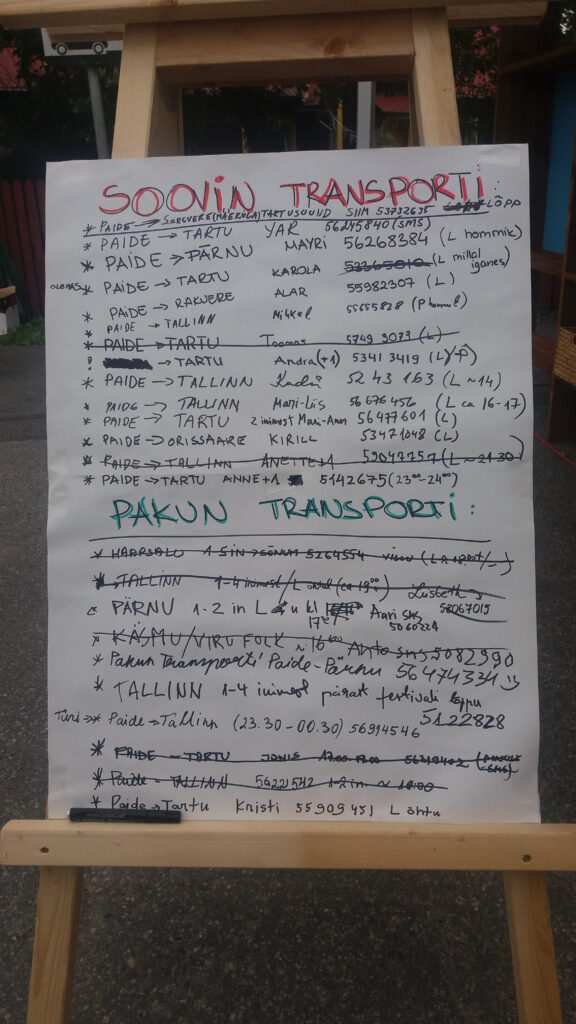 SOOVIN TRANSPORTI:
* PAIDE → SARGVERE (MÄEKÜLA) TARTUSUUND SIIM 53732635 LÕPP
* PAIDE → TARTU YAR 56245840 (SMS)
* PAIDE → PÄRNU MAYRI 56268384 (L hommik)
OLEMAS * PAIDE → TARTU KAROLA (L millal iganes)
* PAIDE → RAKVERE ALAR 55982307 (L)
* PAIDE → TALLINN Mihkel 55655828 (P hommik)
* PAIDE → TARTU Toomas 5749 3073 (L)
! → TARTU Andra (+1) 5341 3419 (L)/P)
* PAIDE → TALLINN Kadri 52 43 163 (L ~14)
* PAIDE → TALLINN Mari-Liis 56 676 456 (L ca 16-17)
* PAIDE → TARTU 2 inimest Mari-Ann 56477601 (L)
* PAIDE → ORISSAARE KIRILL 53471048 (L)
* PAIDE → TALLINN ANETTE+1 59047757 (L ~21.30)
* PAIDE → TARTU ANNE+1 5142675 (23⁰⁰-24⁰⁰)
PAKUN TRANSPORTI:
* HAAPSALU 1-5 in → SÕNUM 5264554
* → TALLINN 1-4 inimest/L (ca 19⁰⁰) Liisbeth
PÄRNU 1-2 in L kl 17 Anri sms 5060224 58067015
* KÄSMU/VIRU FOLK ~16⁰⁰ Anto sms 5082990
* Pakun Transporti Paide-Pärnu 56474334 :)
* TALLINN 1-4 inimest pärast festivali lõppu 5122828
Türi → * Paide → Tallinn (23.30-00.30) 56914546
* PAIDE - TARTU JANIS 56319402
* Paide - TALLINN 56221542 1-2 in ~ 18:00
* Paide → Tartu Kristi 55909451 L õhtu